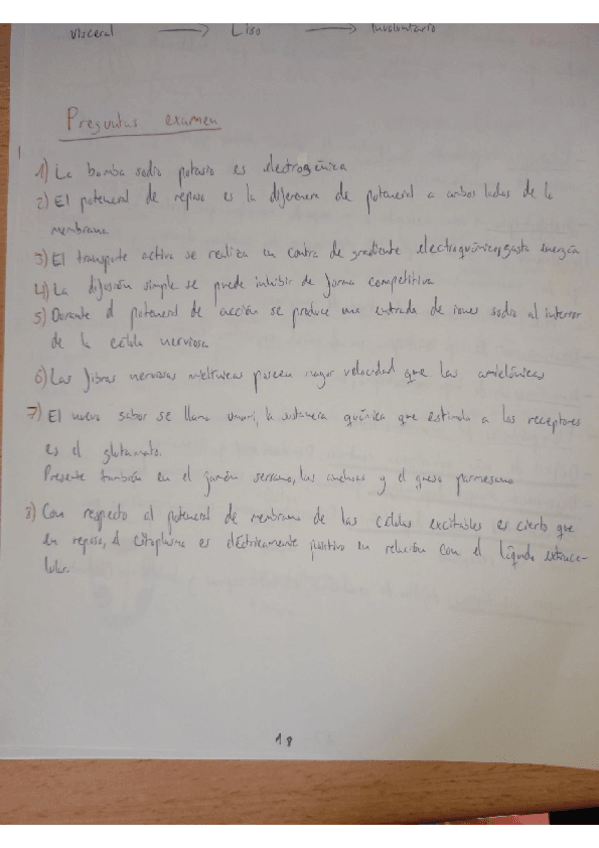 visceral → Liso → Involuntario
Preguntas examen
1) La bomba sodio potasio es electrogénica
2) El potencial de reposo es la diferencia de potencial a ambos lados de la
membrana
3) El transporte activo se realiza en contra de gradiente electroquímico, gasta energía
4) La difusión simple se puede inhibir de forma competitiva
5) Durante el potencial de acción se produce una entrada de iones sodio al interior
de la célula nerviosa
6) Las fibras nerviosas mielínicas poseen mayor velocidad que las amielínicas
7) El nuevo sabor se llama umami, la sustancia química que estimula a los receptores
es el glutamato.
Presente también en el jamón serrano, las anchoas y el queso parmesano
8) Con respecto al potencial de membrana de las células excitables es cierto que
en reposo, el citoplasma es eléctricamente positivo en relación con el líquido extrace-
lular.
18